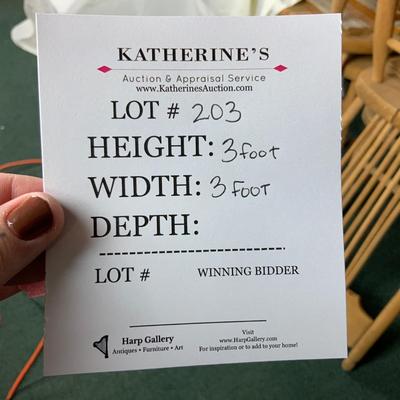 KATHERINE'S
Auction & Appraisal Service
www.KatherinesAuction.com
LOT # 203
HEIGHT: 3 foot
WIDTH: 3 FOOT
DEPTH:
LOT # WINNING BIDDER
Harp Gallery
Antiques • Furniture • Art
Visit
www.HarpGallery.com
For inspiration or to add to your home!